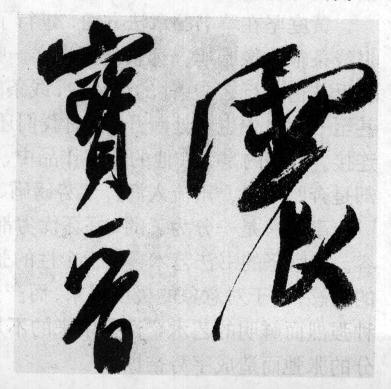 震
寶晉